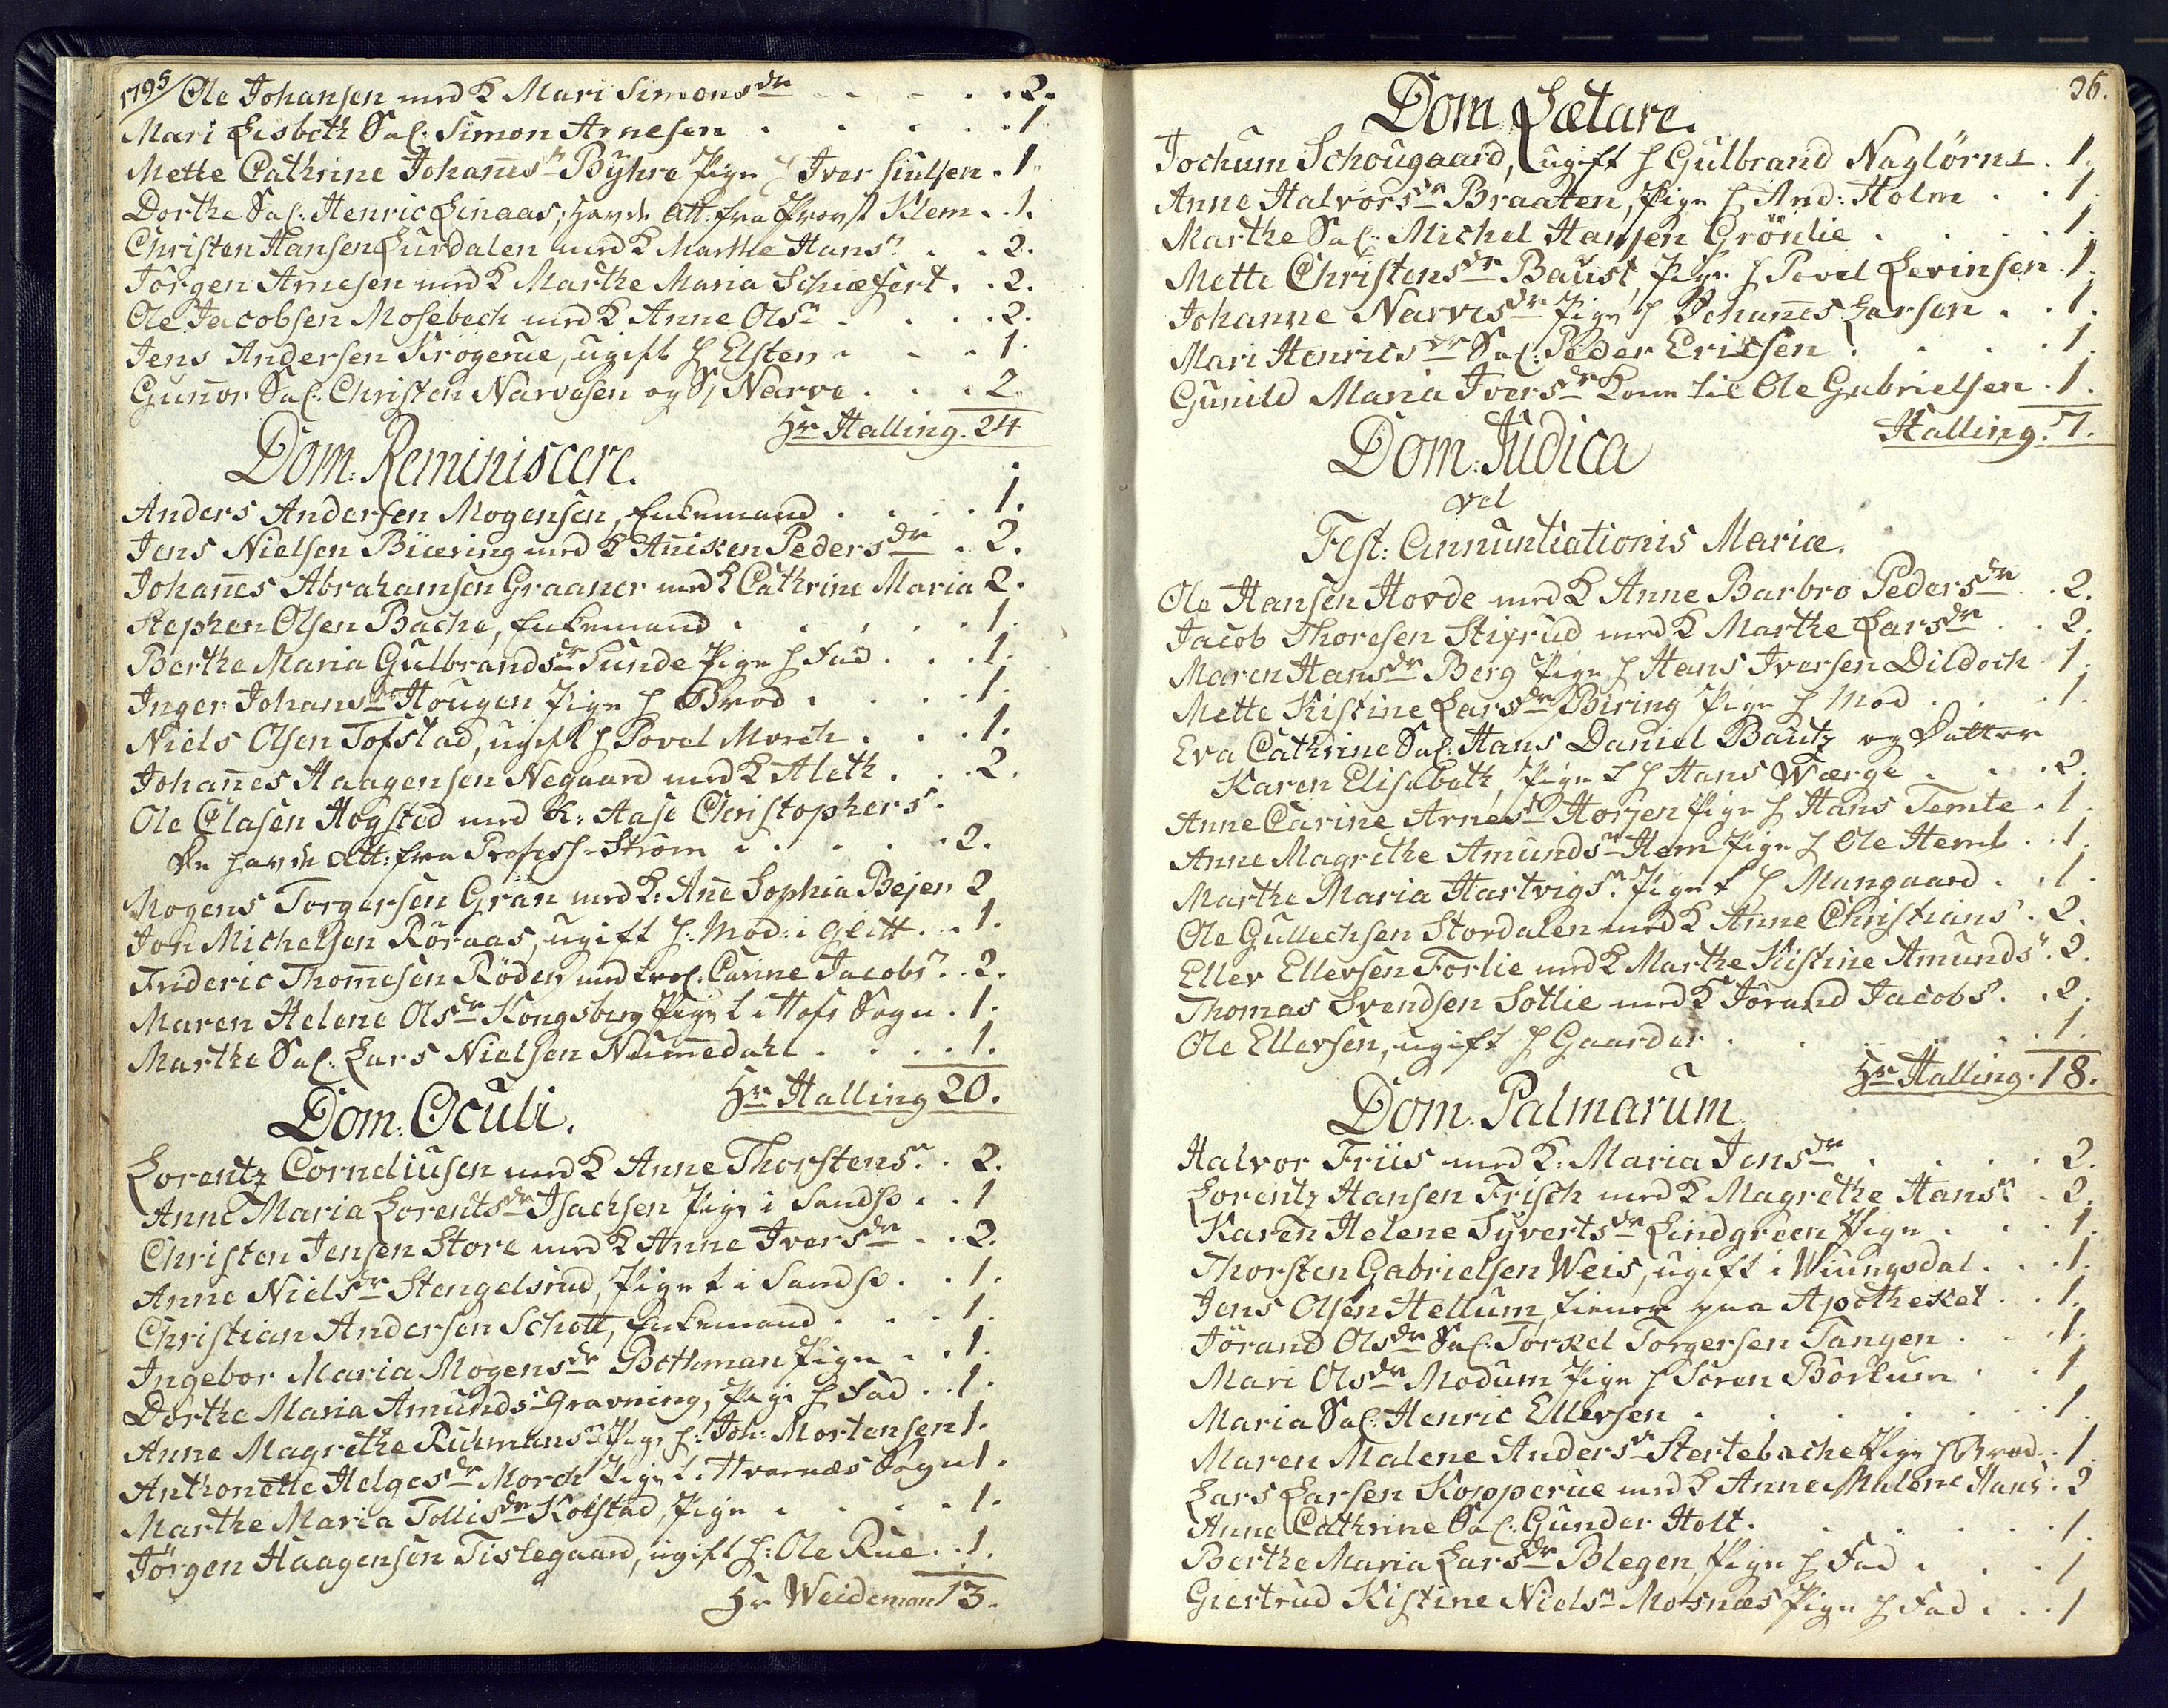 1795/ Ole Johansen med K Mari Simonsdr . . . 2.
Mari Lisbeth Sal: Simon Arnesen . . . . 1
Mette Cathrine Johanisr Byhre Pige H Iver Siulsen . 1
Dorthe Sal: Henric Linaas, havde Att: fra Provst Klem . . 1.
Christen Hansen Lurdalen med K Marthe Hansr . . 2.
Jörgen Arnesen med K Marthe Maria Schæfert . . 2.
Ole Jacobsen Mosebech med K Anne Olsr . . . . 2.
Jens Andersen Krogerue, ugift H Elsten . . . 1.
Gunnor Sal: Christen Narvesen og S/ Narve . . . 2.
Hr Halling. 24
Dom: Reminiscere.
Anders Andersen Mogensen, Enkemand . . . . 1.
Jens Nielsen Biæring med K Aniken Pedersdr . 2.
Johanes Abrahamsen Graaner med K Cathrine Maria 2.
Stephen Olsen Bache, Enkemand . . . . . 1.
Berthe Maria Gulbrandsdr Sunde Pige H Fad . . . 1.
Inger Johansdr Hougen Pige H Brod . . . . 1.
Niels Olsen Tofstad, ugift H Povel Morch . . . 1.
Johanes Haagensen Negaard med K Aleth . . . 2.
Ole Clasen Hogsted med K: Aase Christophersr.
De havde Att: fra Profess. Strøm . . . . 2.
Mogens Torgersen Gran med K: Ane Sophia Bejer 2
Joh Michelsen Röraas, ugift H: Mod: i Glitt . . 1.
Frideric Thomesen Röder med Carine Jacobsr . . 2.
Maren Helene Olsdr Kongsberg Pige t i Hofs Sogn . 1.
Marthe Sal: Lars Nielsen Numedahl . . . . 1.
Hr Halling 20.
Dom: Oculi.
Lorentz Corneliusen med K Anne Thorstensr . 2.
Anne Maria Lorentsdr Isachsen Pige i Sandsv . . 1
Christen Jensen Store med K Anne Iversdr . . 2.
Anne Nielsdr Stengelsrud, Pige t i Sandsv . . 1.
Christian Andersen Schott, Enkemand . . . 1.
Ingebor Maria Mogensdr Bothman Pige . . 1.
Dorthe Maria Amundsr Gravning, Pige H Fad . . 1.
Anne Magrethe Rukmansr Pige H: Joh: Mortensen 1.
Anthonette Helgesdr Morch Pige t. Hvarnæs Sogn 1.
Marthe Maria Tollisdr Kolstad, Pige . . . . 1.
Jörgen Haagensen Tislegaard, ugift H: Ole Rue . . 1.
Hr Weideman 13.
36.
Dom. Lætare.
Jochum Schougaard, ugift H Gulbrand Naglörne . 1.
Anne Halvorsdr Braaten, Pige H And: Holm . . 1.
Marthe Sal: Michel Hansen Grönlie . . . . 1.
Mette Christensdr Baust, Pige H Povel Levinsen . 1.
Johanne Narvesdr Pige H Johanes Larsen . . 1.
Mari Henricsdr Sal: Peder Ericsen . . . . 1.
Gunild Maria Iversdr Kone til Ole Gabrielsen . 1.
Halling. 7.
Dom: Judica
vel
Fest: Annuntiationis Mariæ.
Ole Hansen Hovde med K Anne Barbro Pedersdr . . 2.
Jacob Thoresen Stifrud med K Marthe Larsdr . . 2.
Maren Hansdr Berg Pige H Hans Iversen Dildoch 1.
Mette Kistine Larsdr Biring Pige H Mod . . . 1.
Eva Cathrine Sal: Hans Daniel Bautz og Datter
Karen Elisabeth, Pige t H Hans Wærge . . . 2.
Anne Carine Arnesdr Horjen Pige H Hans Temte . 1.
Anne Magrethe Amundsr Hem Pige H Ole Heml . . 1.
Marthe Maria Hartvigsr. Pige t H Mungaard . . 1.
Ole Gullechsen Stordalen med K Anne Christiansr . 2.
Ellev Ellevsen Forlie med K Marthe Kistine Amundsr . 2.
Thomas Svendsen Sotlie med K Jörand Jacobsr . . 2.
Ole Ellevsen, ugift H Gaarder . . . . . 1.
Hr Halling. 18.
Dom: Palmarum.
Halvor Friis med K: Maria Jensdr . . . . 2.
Lorentz Hansen Frisch med K Magrethe Hansr . 2.
Karen Helene Syvertsdr Lindgreen Pige . . . 1.
Thorsten Gabrielsen Weis, ugift i Wiungsdal . . . 1.
Jens Olsen Hellum, tiener paa Apotheket . . 1.
Jörand Olsdr Sal: Torkel Torgersen Tangen . . . 1.
Mari Olsdr Modum Pige H Sören Börtum . . 1
Maria Sal: Henric Ellevsen . . . . . . 1.
Maren Malene Andersr Stertebache Pige H Brod . . 1.
Lars Larsen Kopperue med K Anne Malene Hansr . 2
Anne Cathrine Sal: Gunder Holt . . . . . 1.
Berthe Maria Larsdr Blegen, Pige H Fad . . . 1
Giertrud Kistine Nielsr Mosnæs Pige H Fad . . . 1